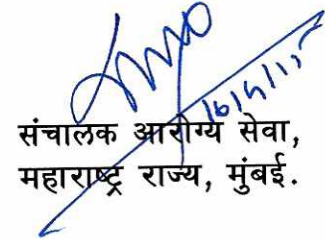 संचालक आरोग्य सेवा,
महाराष्ट्र राज्य, मुंबई.